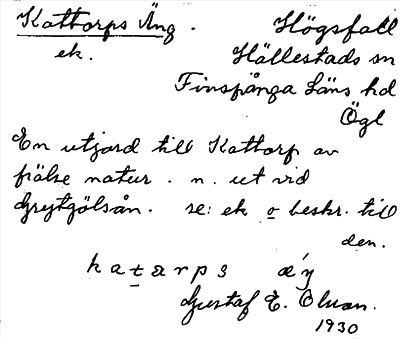 Kattorps Äng. Högsfall
ek. Hällestads sn
Finspånga Läns hd
Ögl
En utjord till Kattorp av
frälse natur. n. ut vid
Grytgölsån. se: ek o beskr. till
den.
katarps æ´y
Gustaf E. Olson.
1930